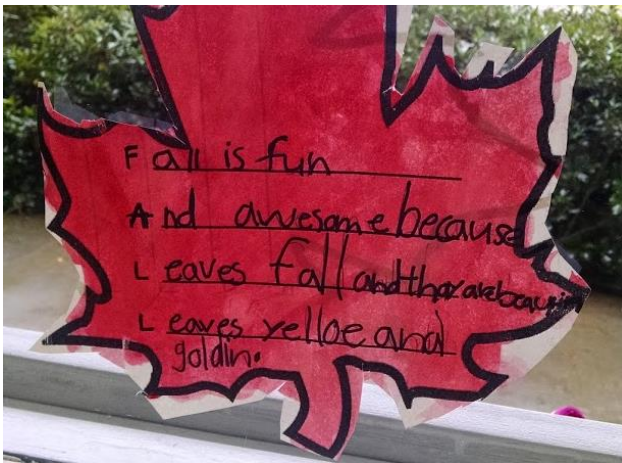 Fall is fun
And awesome because
Leaves fall and thar are
Leaves yelloe and
goldin.